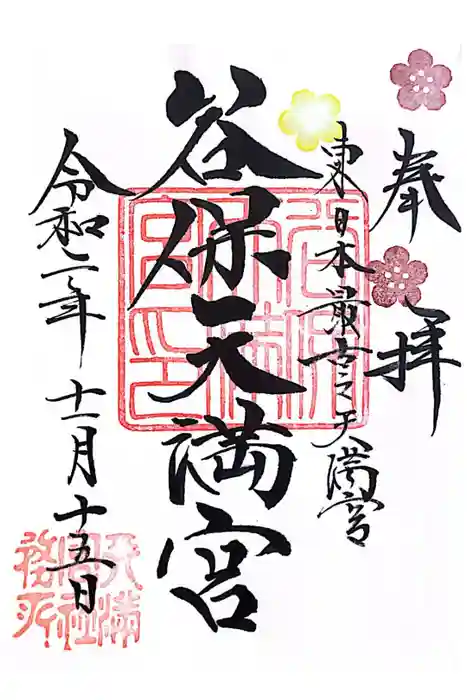 奉拝
東日本最古之天満宮
谷保天満宮
令和二年十一月十五日
天満宮社務所